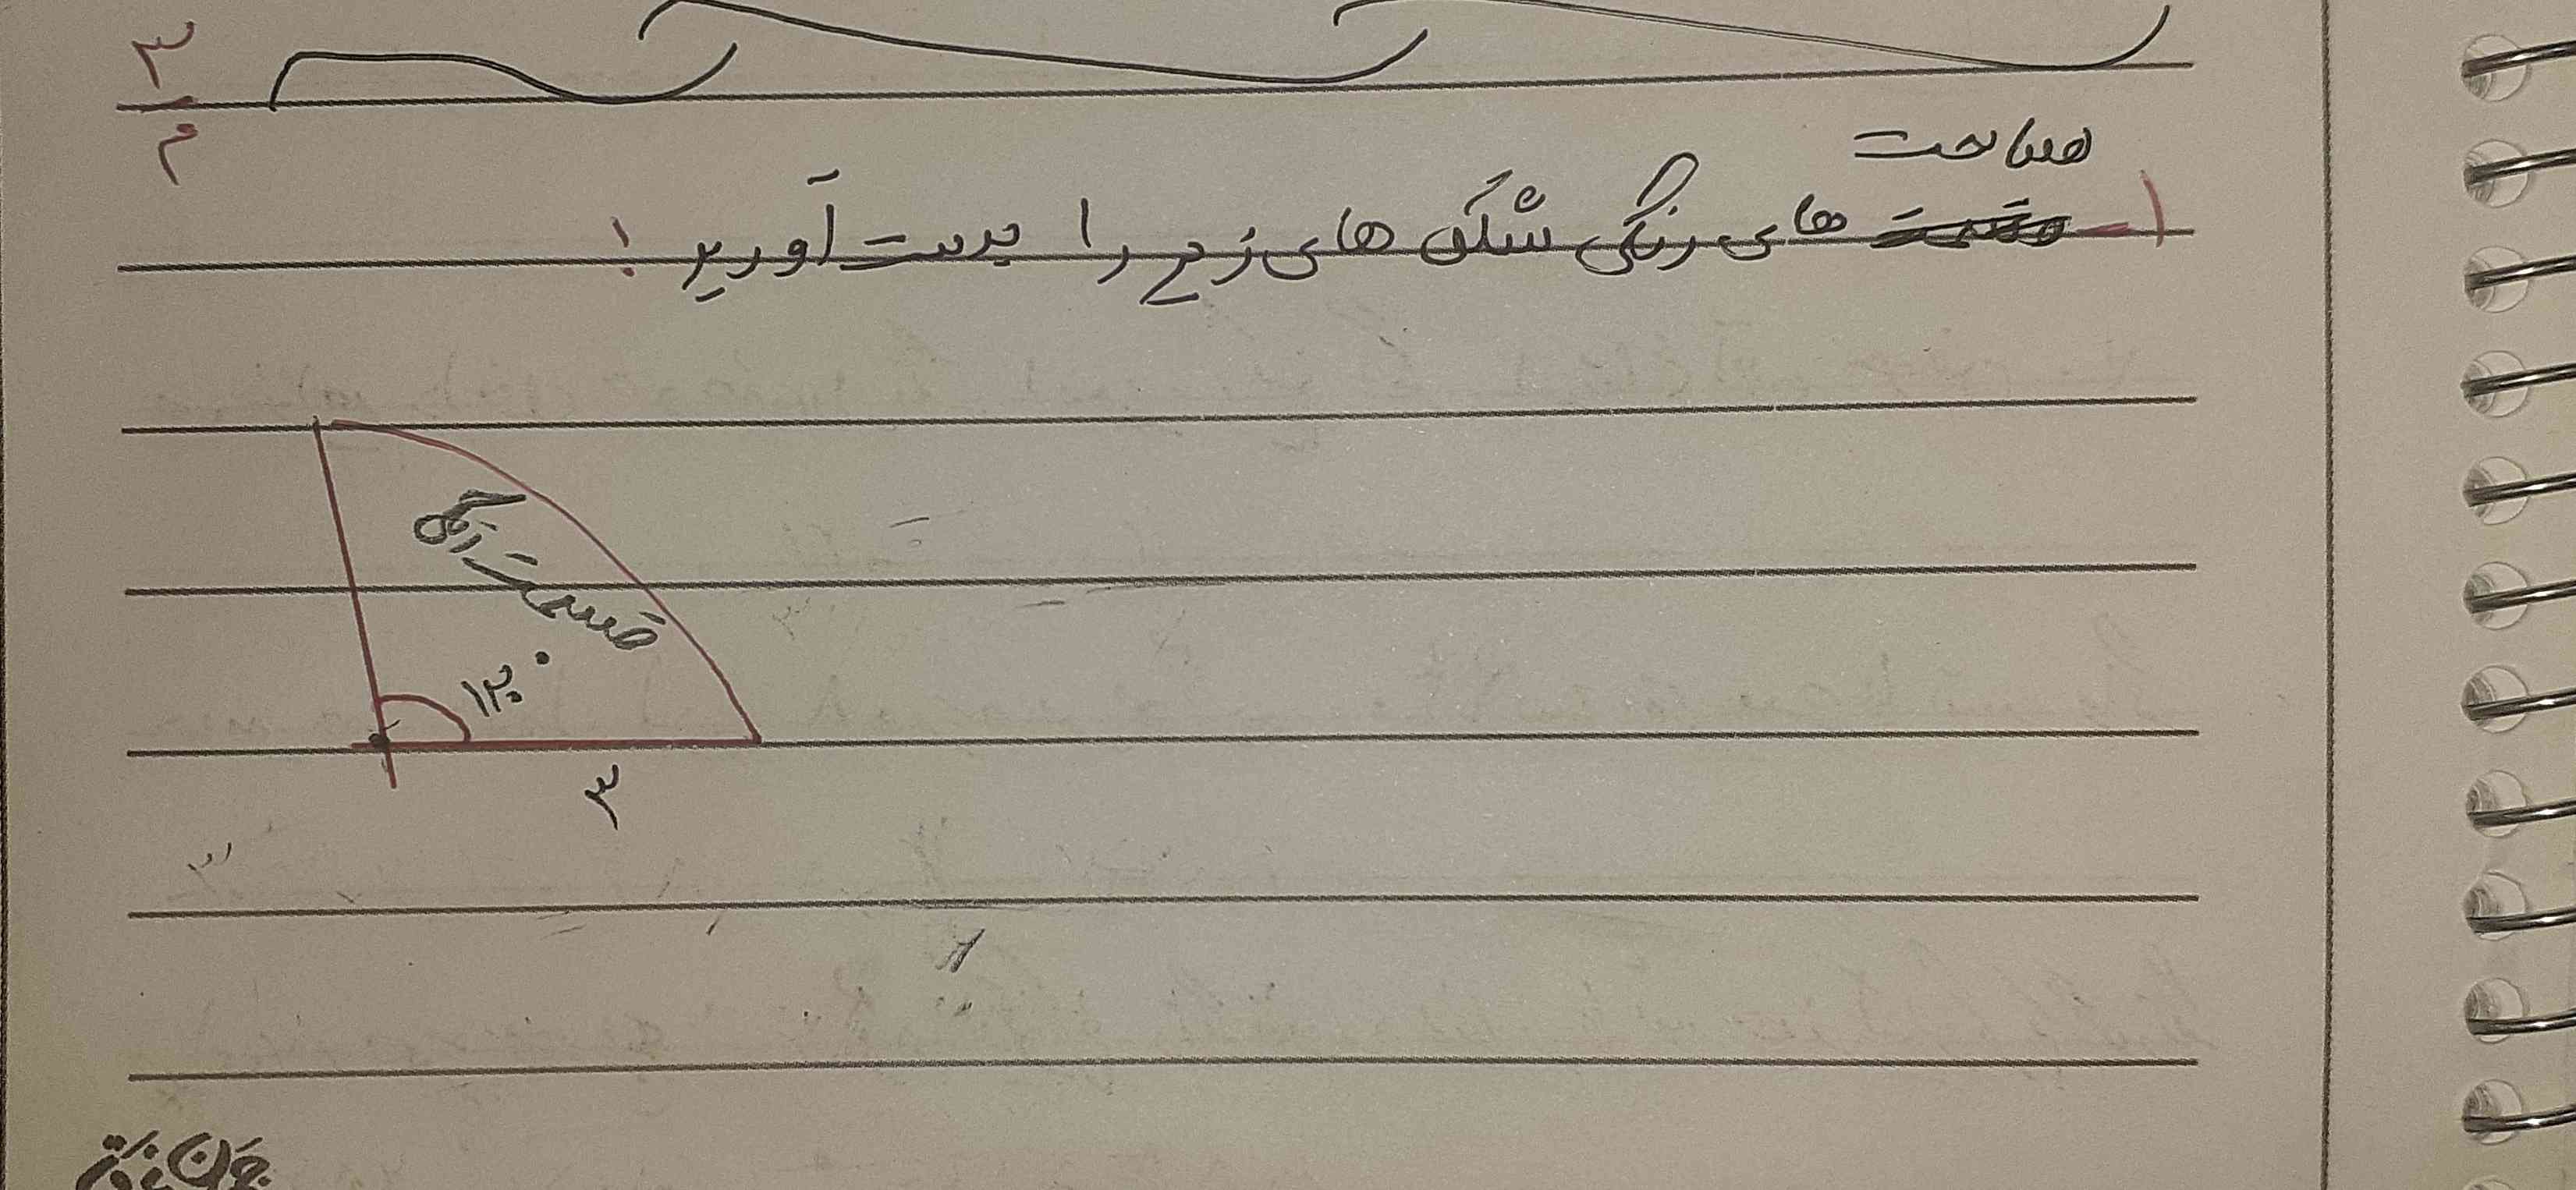 ۳
م
مساحت
۱- قسمت های رنگی شکل های زیر را بدست آورید!
قسمت رنگی
۱۲۰°
۳